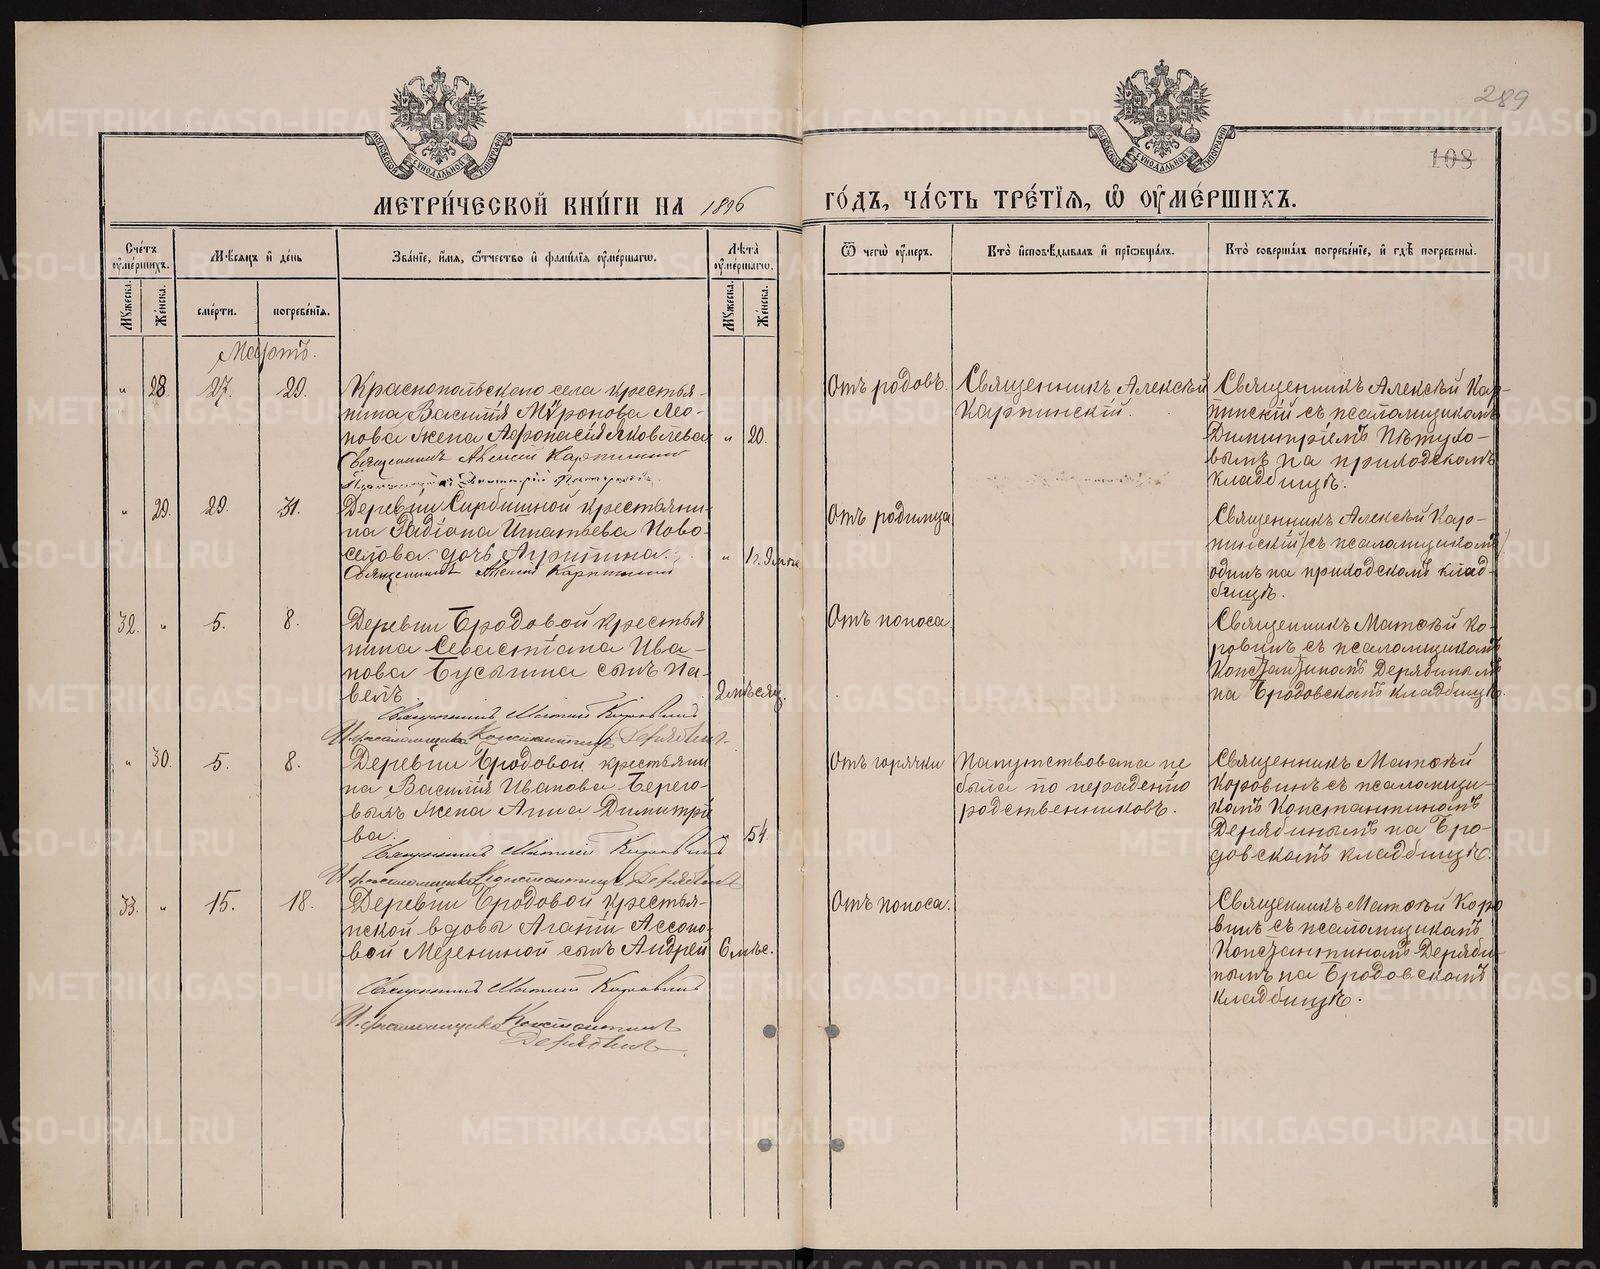 289
108
МЕТРИ́ЧЕСКОЙ КНИ́ГИ НА 1896 ГО́ДЪ, ЧА́СТЬ ТРЕ́ТЇѦ, Ѡ҆ ОУ҆МЕ́РШИХЪ.
Сче́тъ оу҆ме́ршихъ.
Мѣ́сѧцъ и҆ де́нь
Зва́нїе, и҆́мѧ, ѻ҆́тчество и҆ фами́лїѧ оу҆ме́ршагѡ.
Лѣ́та оу҆ме́ршагѡ.
Ѿ чегѡ̀ оу҆́меръ.
Кто̀ и҆сповѣ́дывалъ и҆ прїѡбща́лъ.
Кто̀ соверша́лъ погребе́нїе, и҆ гдѣ̀ погребены̀.
Мꙋ́жеска.
Же́нска.
сме́рти.
погребе́нїѧ.
Мꙋ́жеска.
Же́нска.
Мартъ.
" 28. 27. 29.
Краснопольскаго села крестья-
нина Василія Мѵронова Лео-
нова жена Афонасія Яковлева
" 20.
Священникъ Алексій Карпинскій
Отъ родовъ.
Священникъ Алексѣй
Карпинскій.
Священникъ Алексѣй Кар-
пинскій съ псаломщикомъ
Димитріемъ Пѣтухо-
вымъ на приходскомъ
кладбищѣ.
" 29. 29. 31.
Деревни Сирбишной крестьяни-
на Радіона Игнатьева Ново-
селова дочь Агрипина.
" 1 г. 9 мѣс.
Священникъ Алексій Карпинскій
Отъ родимца
Священникъ Алексѣй Кар-
пинскій (съ псаломщикомъ)
одинъ на приходскомъ клад-
бищѣ.
32. " 5. 8.
Деревни Бродовой крестья
нина Севастіана Ива-
нова Бусыгина сынъ Па-
велъ.
2 мѣсяц.
Священникъ Матѳій Коровинъ
И. д. псаломщика Константинъ Дерябинъ
Отъ поноса
Священникъ Матѳѣй Ко-
ровинъ съ псаломщикомъ
Константиномъ Дерябинымъ
на Бродовскомъ кладбищѣ.
" 30. 5. 8.
Деревни Бродовой крестьяни
на Василія Иванова Берего-
выхъ жена Анна Димитрі
ва.
" 54.
Священникъ Матѳій Коровинъ
И. д. псаломщика Константинъ Дерябинъ
Отъ горячки
Напутствована не
была по нерадѣнію
родственниковъ.
Священникъ Матѳѣй
Коровинъ съ псаломщи-
комъ Константиномъ
Дерябинымъ на Бро-
довскомъ кладбищѣ.
33. " 15. 18.
Деревни Бродовой крестья-
нской вдовы Агапіи Ассоно-
вой Мезениной сынъ Андрей
6 мѣс.
Священникъ Матѳій Коровинъ
И. д. псаломщика Константинъ
Дерябинъ
Отъ поноса.
Священникъ Матѳѣй Коро
винъ съ псаломщикомъ
Константиномъ Деряби-
нымъ на Бродовскомъ
кладбищѣ.
METRIKI.GASO-URAL.RU